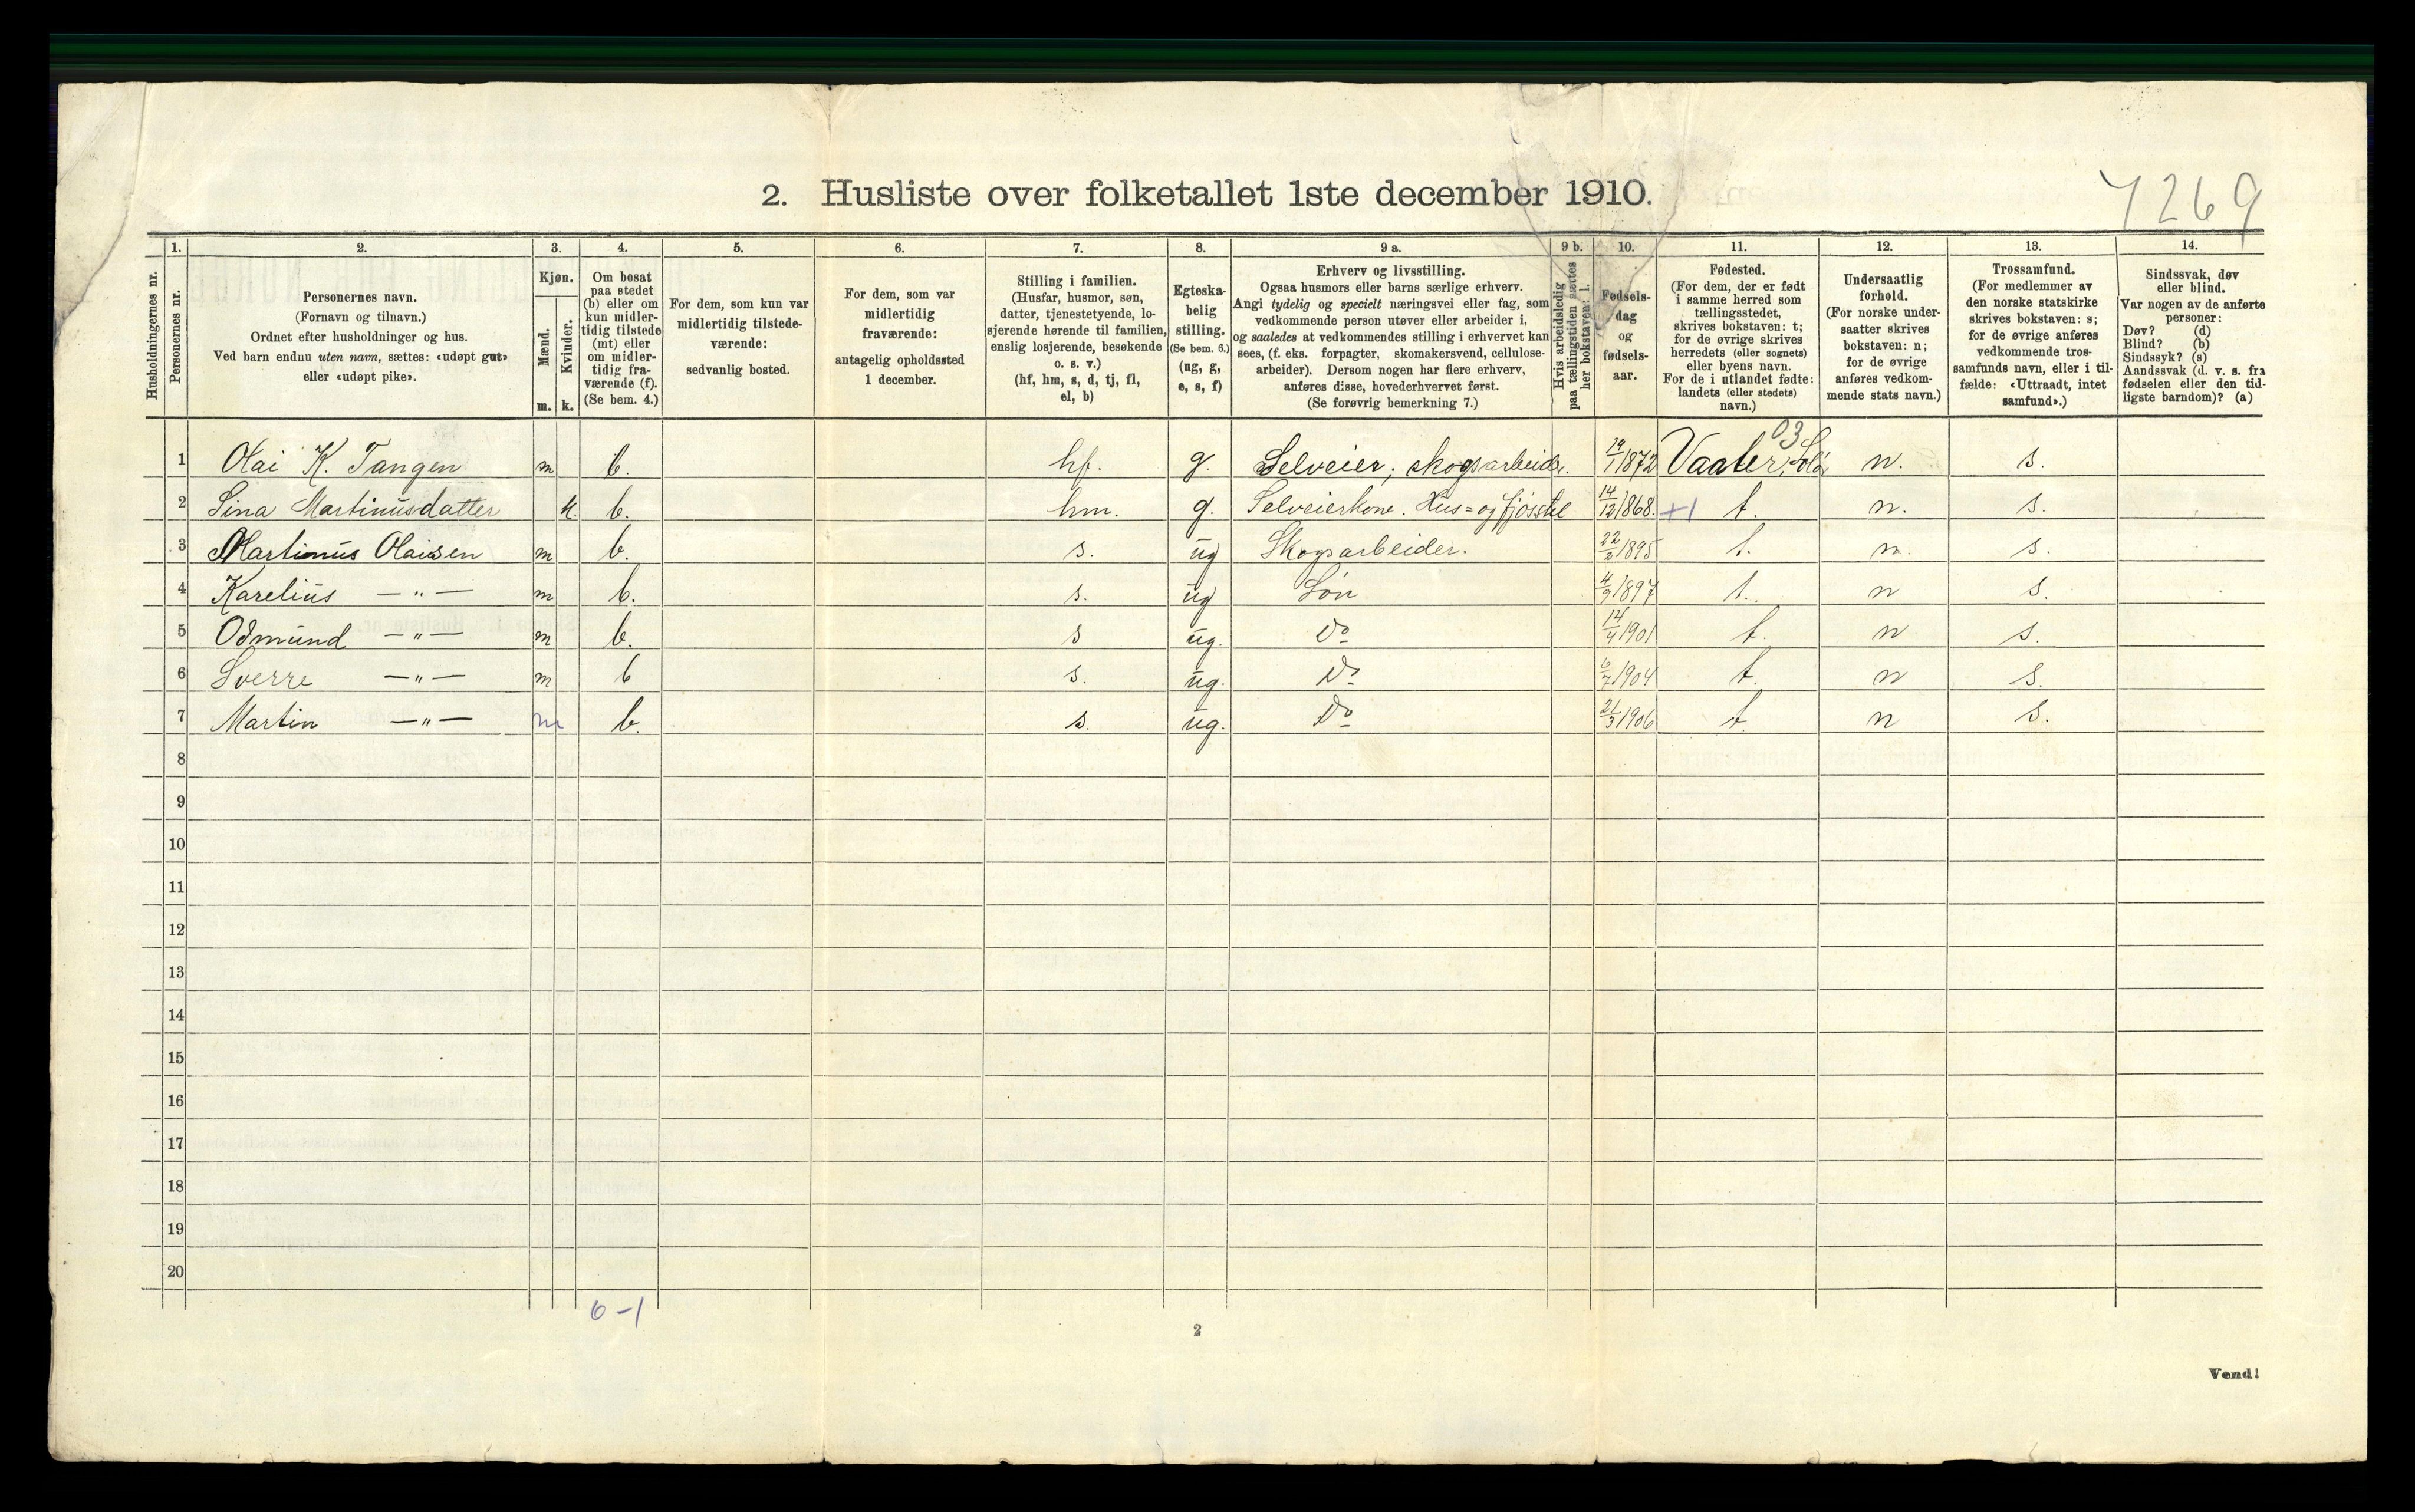 7269
2. Husliste over folketallet 1ste december 1910.
Husholdningernes nr.
1. Personernes nr.
2. Personernes navn. (Fornavn og tilnavn.) Ordnet efter husholdninger og hus. Ved barn endnu uten navn, sættes: «udøpt gut» eller «udøpt pike».
3. Kjøn. Mænd. m. Kvinder. k.
4. Om bosat paa stedet (b) eller om kun midler-tidig tilstede (mt) eller om midler-tidig fra-værende (f). (Se bem. 4.)
5. For dem, som kun var midlertidig tilstede-værende: sedvanlig bosted.
6. For dem, som var midlertidig fraværende: antagelig opholdssted 1 december.
7. Stilling i familien. (Husfar, husmor, søn, datter, tjenestetyende, lo-sjerende hørende til familien, enslig losjerende, besøkende o. s. v.) (hf, hm, s, d, tj, fl, el, b)
8. Egteska-belig stilling. (Se bem. 6.) (ug, g, e, s, f)
9 a. Erhverv og livsstilling. Ogsaa husmors eller barns særlige erhverv. Angi tydelig og specielt næringsvei eller fag, som vedkommende person utøver eller arbeider i, og saaledes at vedkommendes stilling i erhvervet kan sees, (f. eks. forpagter, skomakersvend, cellulose-arbeider). Dersom nogen har flere erhverv, anføres disse, hovederhvervet først. (Se forøvrig bemerkning 7.)
9 b. Hvis arbeidsledig paa tællingstiden sættes her bokstaven: l.
10. Fødsels-dag og fødsels-aar.
11. Fødested. (For dem, der er født i samme herred som tællingsstedet, skrives bokstaven: t; for de øvrige skrives herredets (eller sognets) eller byens navn. For de i utlandet fødte: landets (eller stedets) navn.)
12. Undersaatlig forhold. (For norske under-saatter skrives bokstaven: n; for de øvrige anføres vedkom-mende stats navn.)
13. Trossamfund. (For medlemmer av den norske statskirke skrives bokstaven: s; for de øvrige anføres vedkommende tros-samfunds navn, eller i til-fælde: «Uttraadt, intet samfund».)
14. Sindssvak, døv eller blind. Var nogen av de anførte personer: Døv? (d) Blind? (b) Sindssyk? (s) Aandssvak (d. v. s. fra fødselen eller den tid-ligste barndom)? (a)
03
1 Olai K. Tangen m b. hf. g. Selveier, skogsarbeider. 19/1 1872 Vaaler, Solør n. s.
2 Sina Martinusdatter k. b. hm. g. Selveierkone. Hus= og fjøsstel 14/12 1868. +1 t. n. s.
3 Martinus Olaisen m b. s. ug Skogsarbeider. 22/2 1895 t. n. s.
4 Karelius —"— m b. s. ug Søn 4/9 1897 t. n s.
5 Odmund —"— m b. s ug. Do 14/4 1901 t. n s.
6 Sverre —"— m b s. ug. Do 6/7 1904 t. n s.
7 Martin —"— m b. s. ug. Do 21/3 1906 t. n s.
8
9
10
11
12
13
14
15
16
17
18
19
20
6-1
2
Vend!